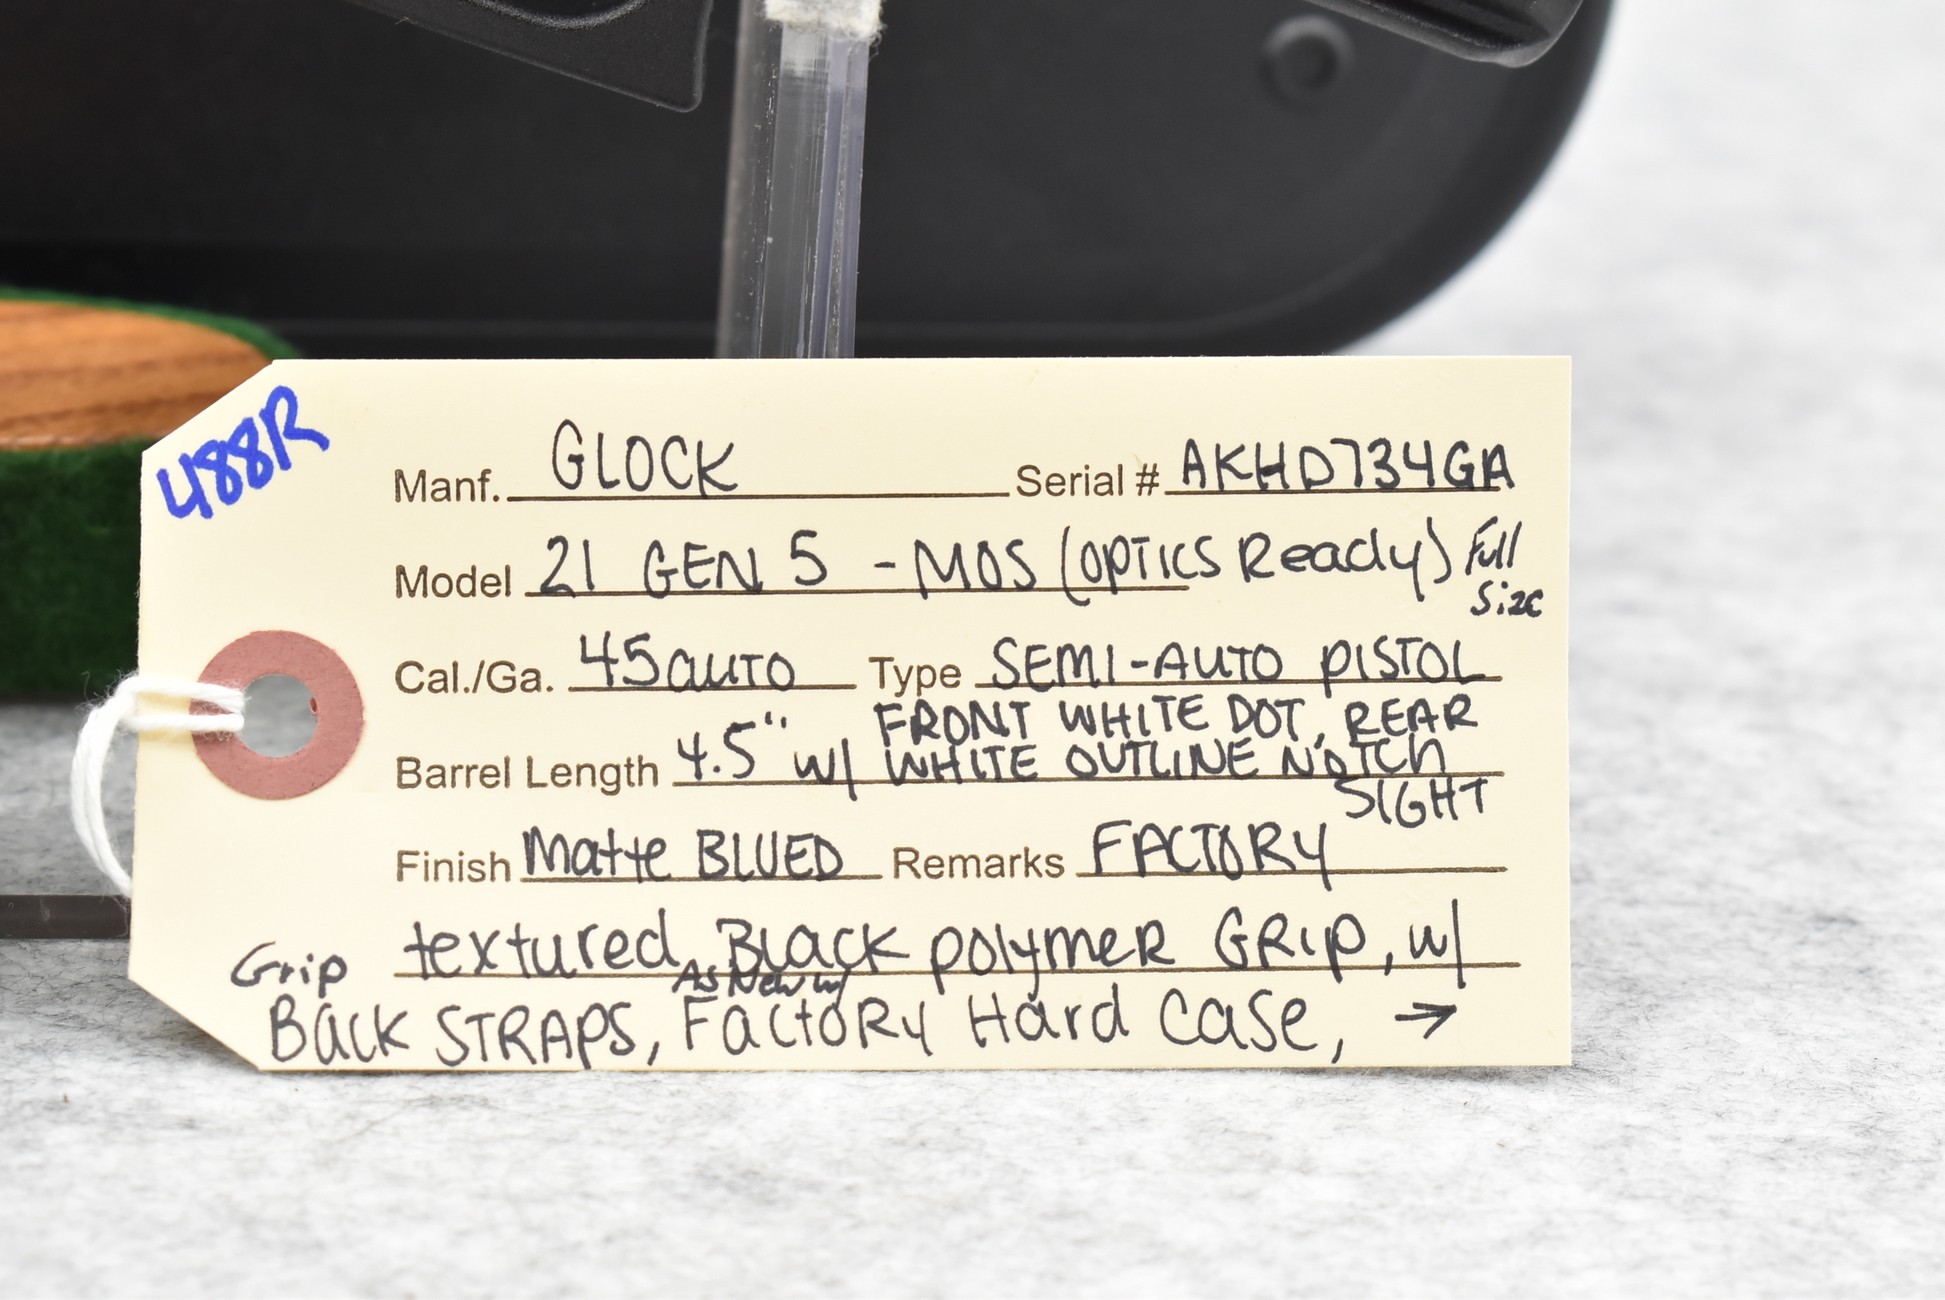 488R
Manf. GLOCK Serial # AKHD734GA
Model 21 GEN 5 - MOS (OPTICS Ready) Full Size
Cal./Ga. 45 auto Type SEMI-AUTO PISTOL
Barrel Length 4.5" w/ FRONT WHITE DOT, REAR
WHITE OUTLINE NOTCH
SIGHT
Finish Matte BLUED Remarks FACTORY
textured Black polymer GRIP, w/
Grip BACK STRAPS, As New w/ Factory Hard Case, →